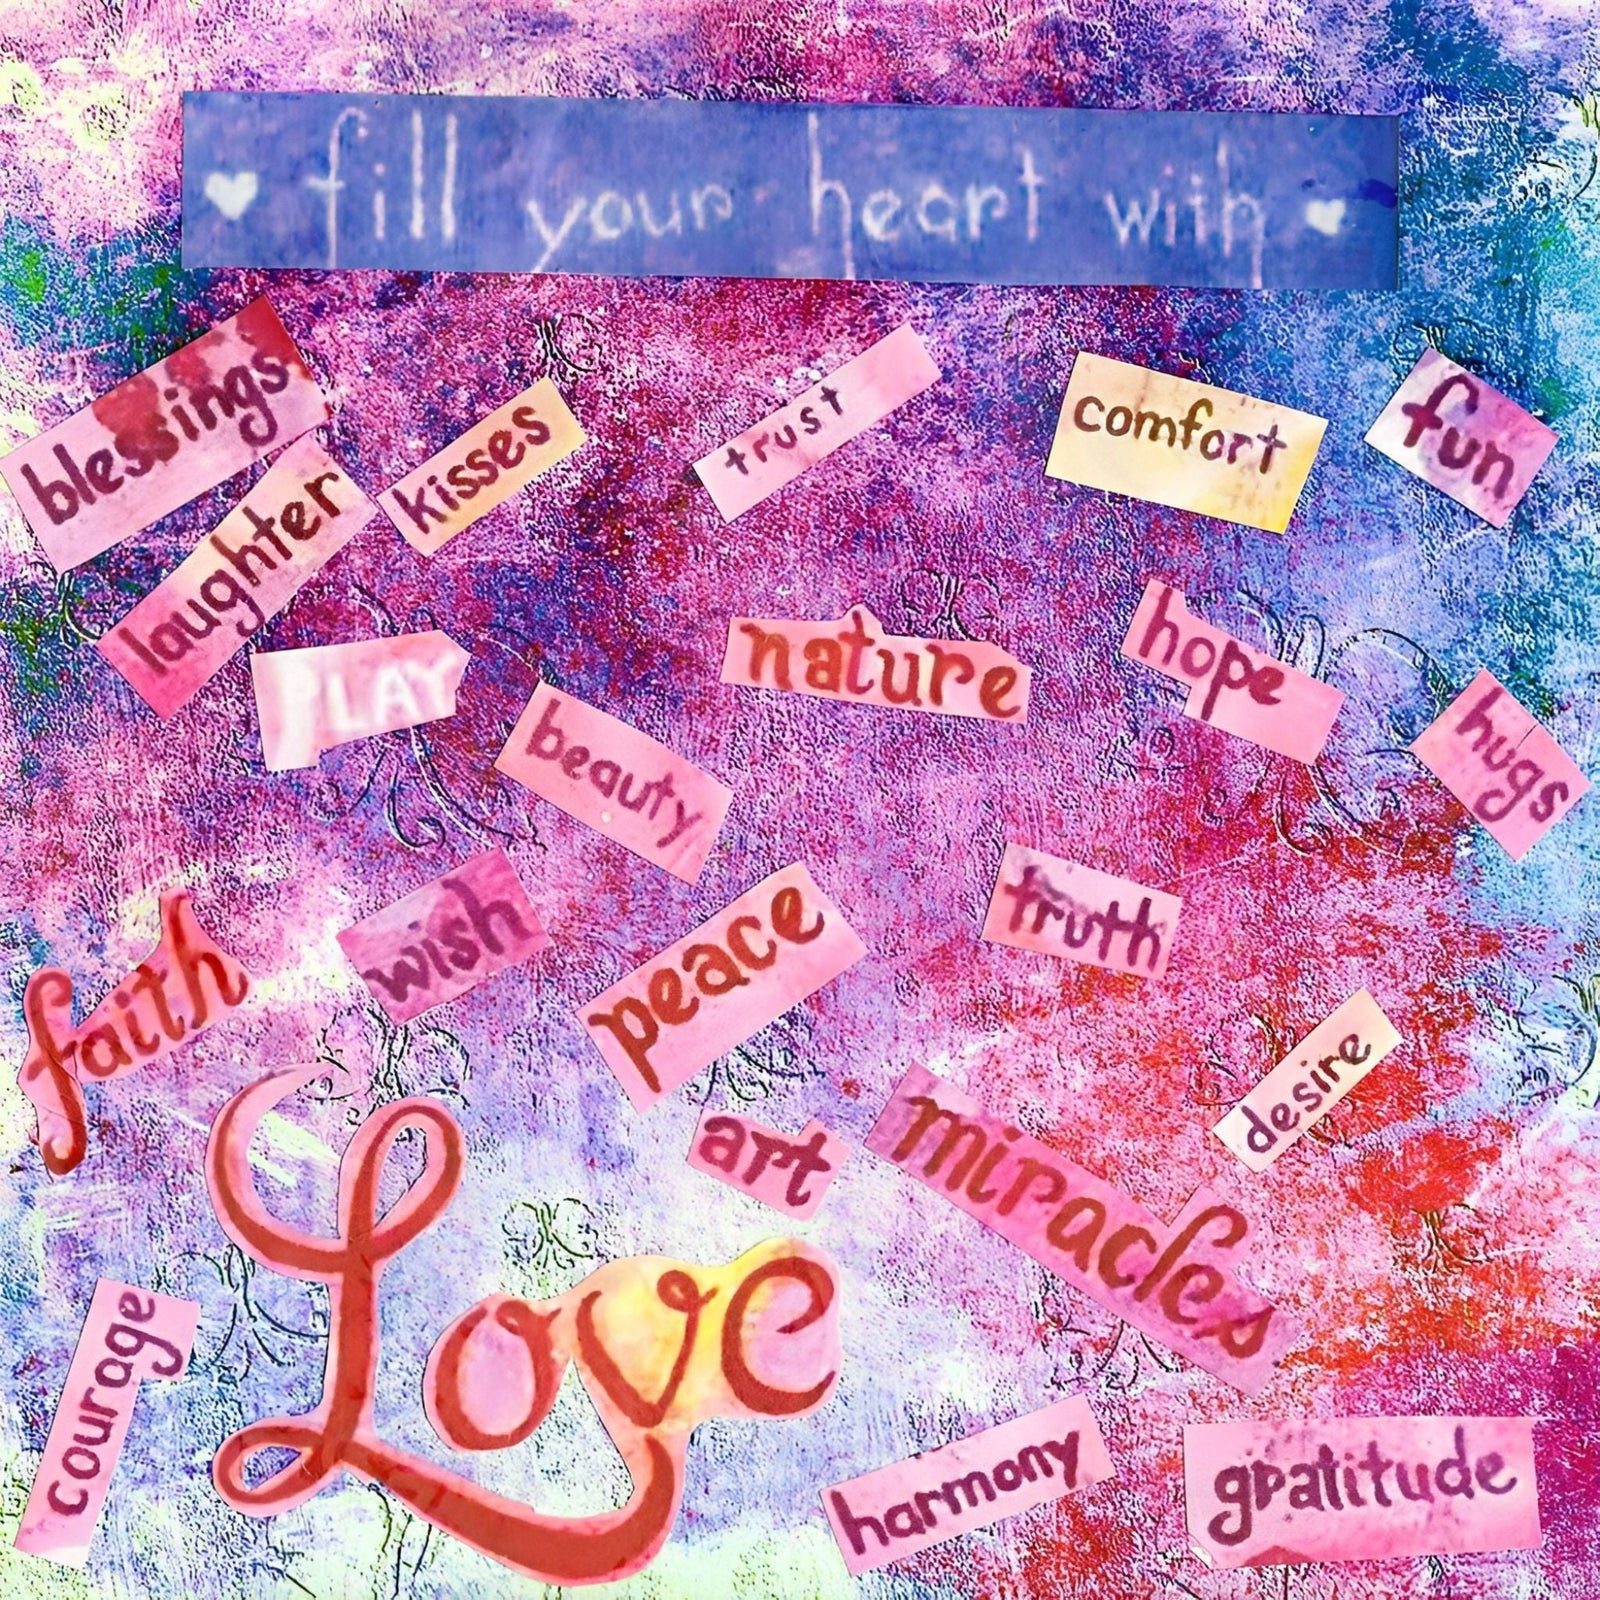 fill your heart with
blessings
kisses
trust
comfort
fun
laughter
PLAY
beauty
nature
hope
hugs
faith
wish
peace
truth
desire
art
miracles
Love
courage
harmony
gratitude